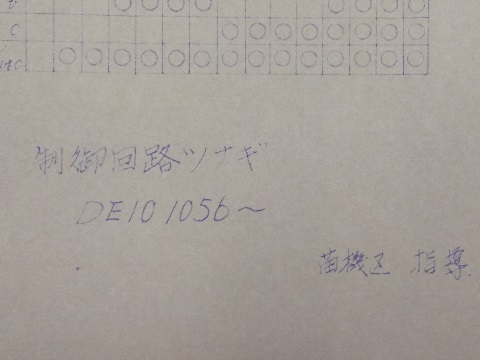 C
制御回路ツナギ
DE10 1056〜
苗機区 指導